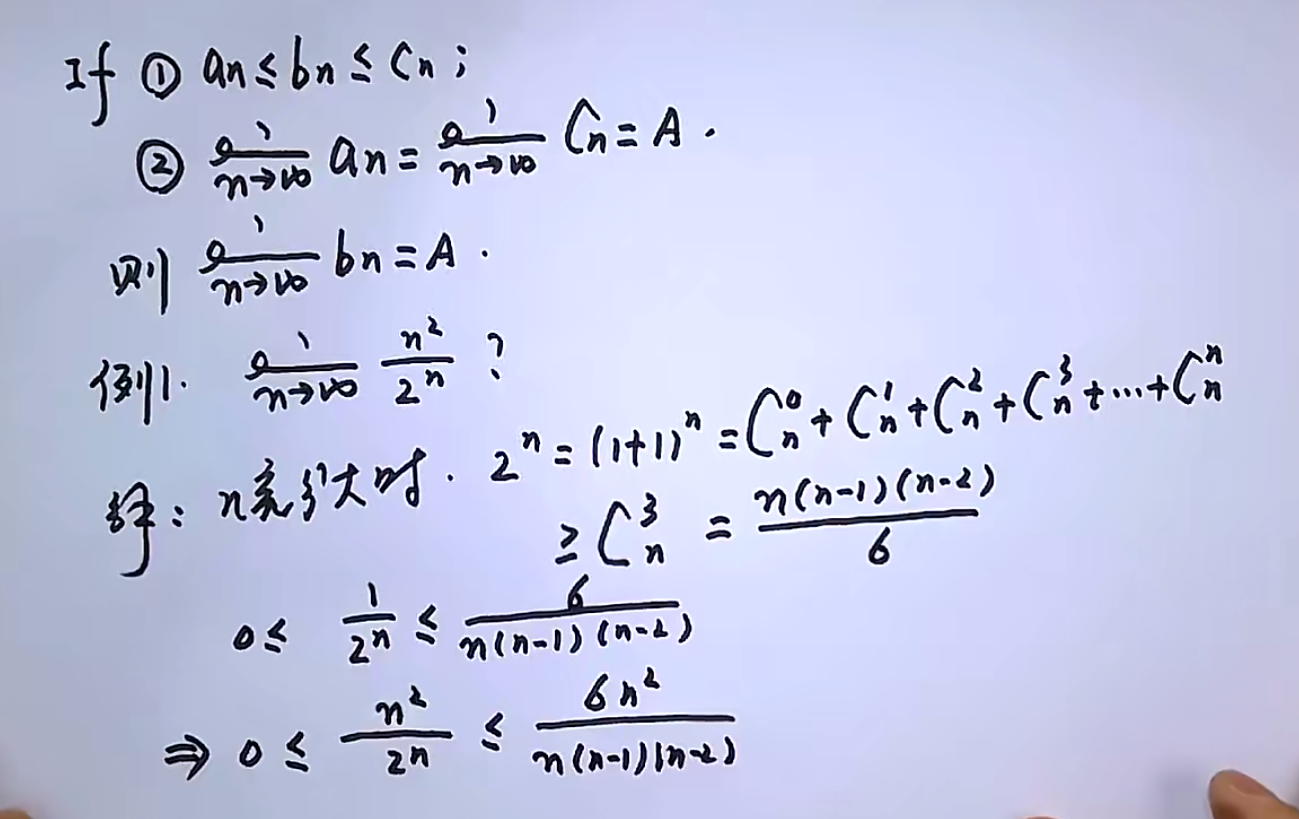 If ① an ≤ bn ≤ Cn ;
② lim n→∞ an = lim n→∞ Cn = A .
则 lim n→∞ bn = A .
例1. lim n→∞ n²/2ⁿ ?
解: n充分大时. 2ⁿ = (1+1)ⁿ = Cn⁰ + Cn¹ + Cn² + Cn³ + … + Cnⁿ
≥ Cn³ = n(n-1)(n-2)/6
0 ≤ 1/2ⁿ ≤ 6/n(n-1)(n-2)
⇒ 0 ≤ n²/2ⁿ ≤ 6n²/n(n-1)(n-2)